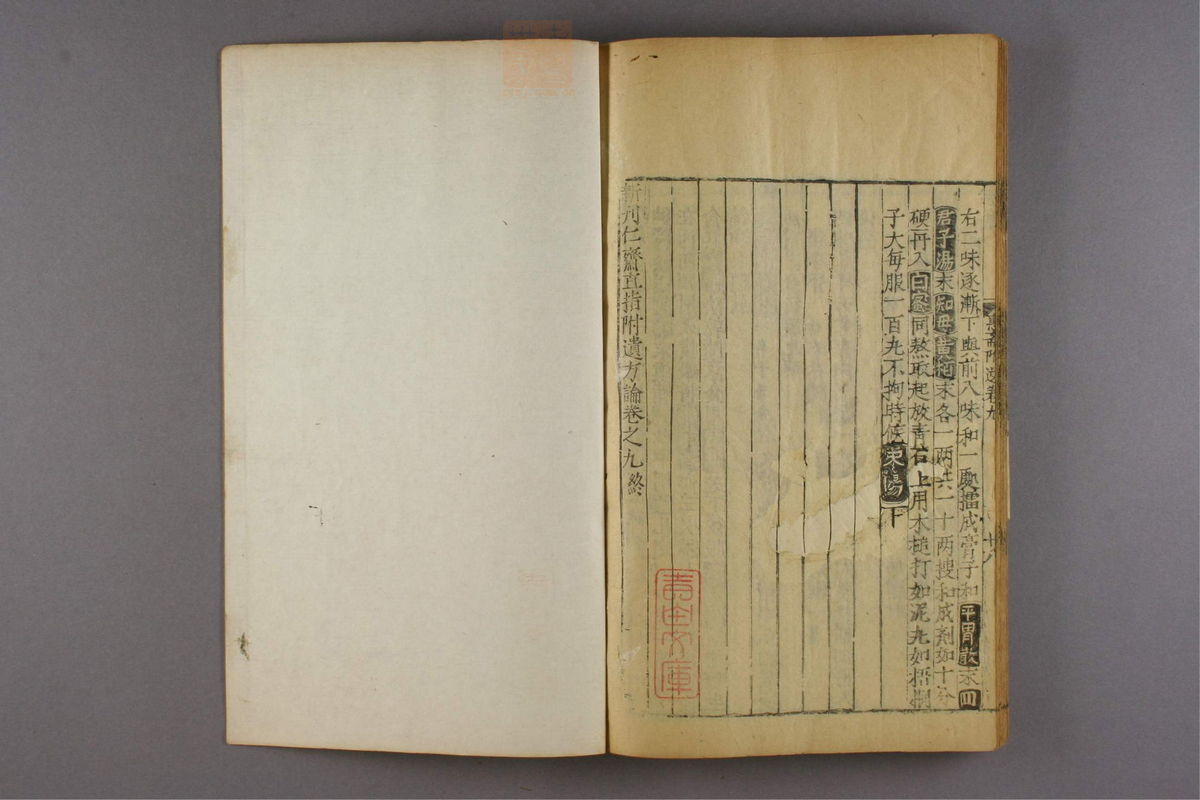 右二味逐漸下與前八味和一處擂成膏子和平胃散末四
君子湯末知母黄栢末各一兩共一十两搜和成劑如十分
硬再入白蜜同熬取起放青石上用木槌打如泥丸如梧桐
子大每服一百丸不拘時候棗湯下
新刊仁齋直指附遺方論卷之九終
吉田文庫